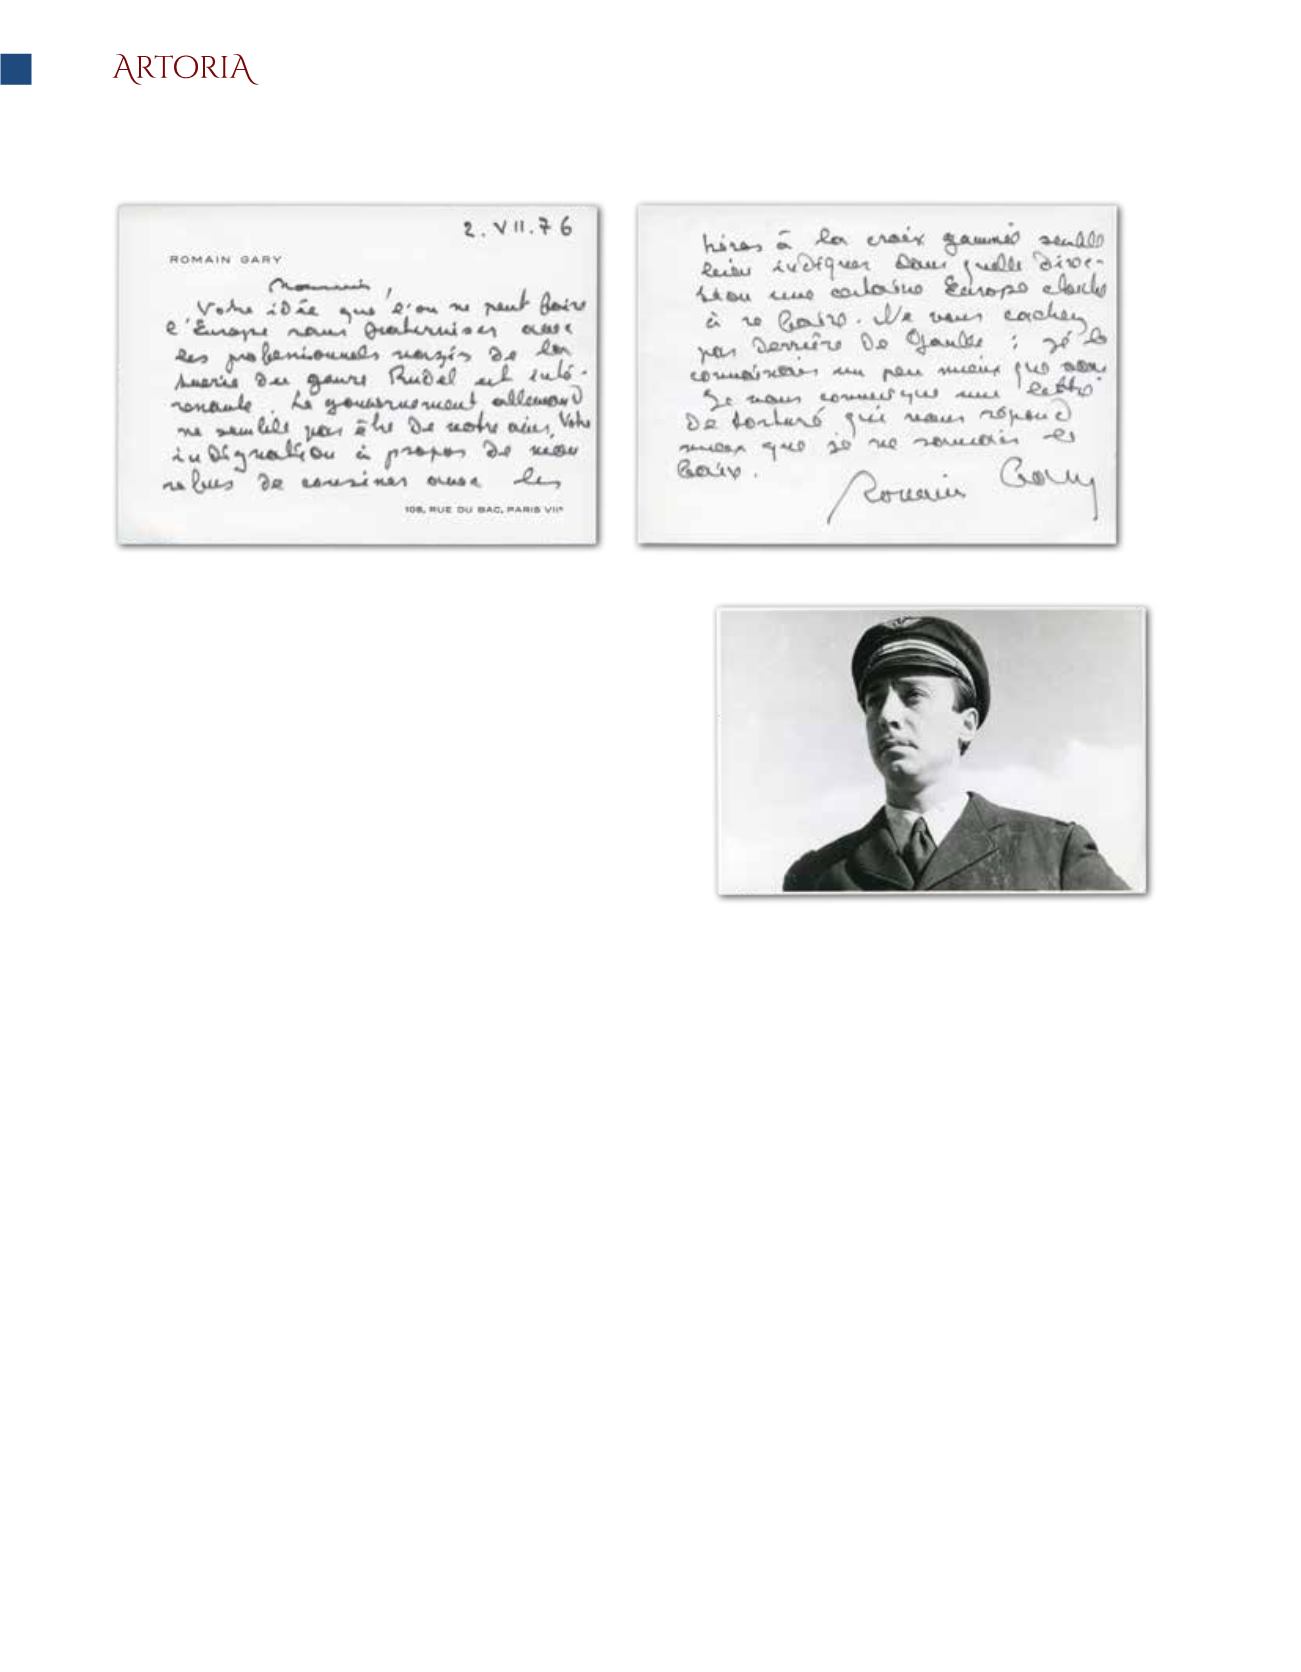 ARTORIA
2.VII.76
ROMAIN GARY
Monsieur,
Votre idée que l'on ne peut faire
l'Europe sans fraterniser avec
les professionnels nazis de la
tuerie du genre Rudel est inté-
ressante. Le gouvernement allemand
ne semble pas être de votre avis. Votre
indignation à propos de mon
refus de cousiner avec les
108, RUE DU BAC, PARIS VIIe
héros à la croix gammée semble
bien indiquer dans quelle direc-
tion une certaine Europe cherche
à se faire. Ne vous cachez
pas derrière De Gaulle : je le
connaissais un peu mieux que vous
Je vous communique une lettre
de torturé qui vous répond
mieux que je ne saurais le
faire.
Romain Gary